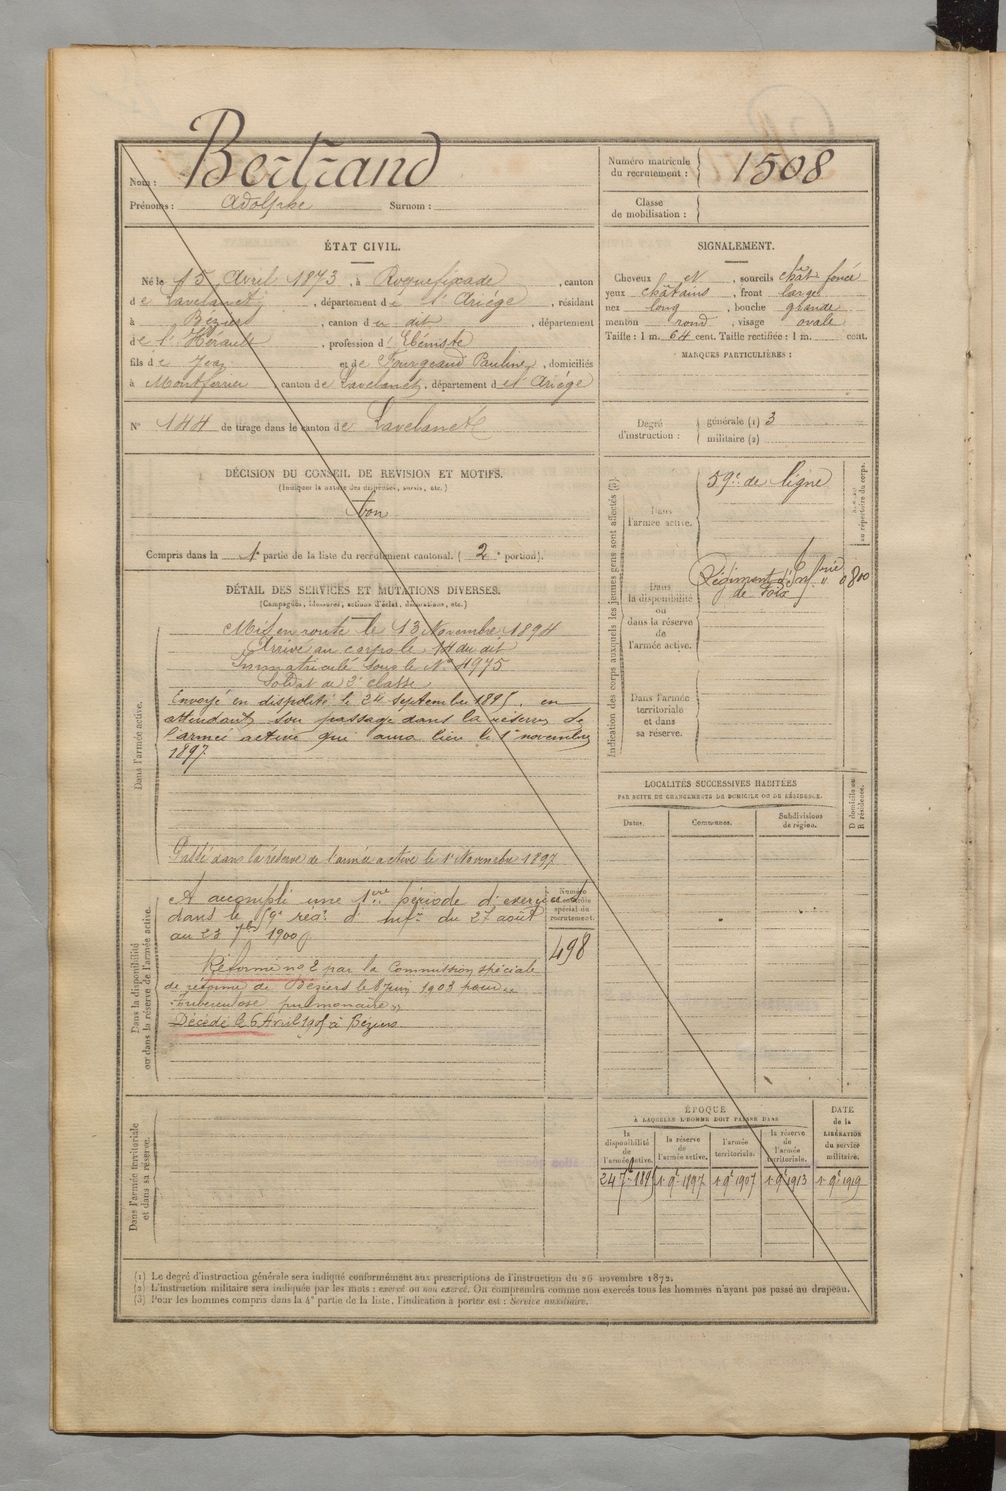 Nom : Bertrand
Prénoms : Adolphe Surnom :
Numéro matricule du recrutement : 1508
Classe de mobilisation :
ÉTAT CIVIL.
Né le 15 Avril 1873, à Roquefixade, canton
de Lavelanet, département de l'Ariège, résidant
à Béziers, canton du dit, département
de l'Hérault, profession d'Ébéniste
fils de Jean et de Fourgeaud Pauline, domiciliés
à Montferrier, canton de Lavelanet, département de l'Ariége
N° 144 de tirage dans le canton de Lavelanet
SIGNALEMENT.
Cheveux et, sourcils chât foncé
yeux châtains, front large
nez long, bouche grande
menton rond, visage ovale
Taille : 1 m. 64 cent. Taille rectifiée : 1 m. cent.
MARQUES PARTICULIÈRES :
Degré d'instruction : générale (1) 3
militaire (2)
DÉCISION DU CONSEIL DE REVISION ET MOTIFS.
(Indiquer la nature des dispenses, sursis, etc.)
bon
Compris dans la 1e partie de la liste du recrutement cantonal. (2e portion).
DÉTAIL DES SERVICES ET MUTATIONS DIVERSES.
(Campagnes, blessures, actions d'éclat, décorations, etc.)
Dans l'armée active.
Mis en route le 13 Novembre 1894
Arrivé au corps le 14 du dit
Immatriculé sous le No 4975
Soldat de 2e classe
Envoyé en dispolité le 24 septembre 1895, en
attendant son passage dans la réserve de
l'armée active qui aura lieu le 1er novembre
1897
Passé dans la réserve de l'armée active le 1er Novembre 1897
Dans la disponibilité
ou dans la réserve de l'armée active.
A accompli une 1ère période d'exercices
dans le 59e regt d'infie du 27 août
au 23 7bre 1900
Réformé no 2 par la Commission spéciale
de réforme de Béziers le 8 juin 1903 pour
"Tuberculose pulmonaire"
Décédé le 6 Avril 1905 à Béziers
spécial du recrutement.
498
Dans l'armée territoriale
et dans sa réserve.
Indication des corps auxquels les jeunes gens sont affectés (3).
au répertoire du corps.
Dans l'armée active.
59e de ligne
Dans la disponibilité ou dans la réserve de l'armée active.
Régiment d'Infrie
de Foix
0800
Dans l'armée territoriale et dans sa réserve.
LOCALITÉS SUCCESSIVES HABITÉES
PAR SUITE DE CHANGEMENTS DE DOMICILE OU DE RÉSIDENCE.
Dates. Communes. Subdivisions de région. D domicile ou R résidence.
ÉPOQUE
À LAQUELLE L'HOMME DOIT PASSER DANS
la disponibilité de l'armée active. la réserve de l'armée active. l'armée territoriale. la réserve de l'armée territoriale.
DATE de la LIBÉRATION du service militaire.
24 7b 1895 1r 9e 1897 1r 9e 1907 1r 9e 1913 1r 9e 1919
(1) Le degré d'instruction générale sera indiqué conformément aux prescriptions de l'instruction du 26 novembre 1872.
(2) L'instruction militaire sera indiquée par les mots : exercé ou non exercé. On comprendra comme non exercés tous les hommes n'ayant pas passé au drapeau.
(3) Pour les hommes compris dans la 4e partie de la liste, l'indication à porter est : Service auxiliaire.